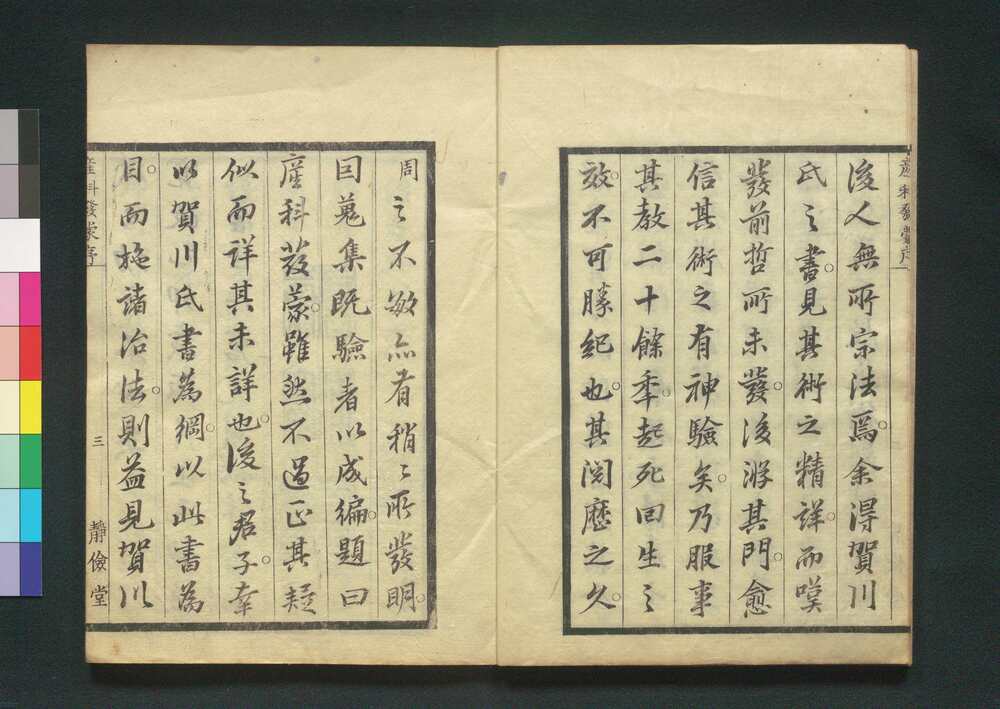 後人無所宗法焉余得賀川
氏之書見其術之精詳而嘆
發前哲所未發後游其門愈
信其術之有神驗矣乃服事
其教二十餘年起死回生之
效不可勝紀也其閱歷之久
產科發蒙序
周之不敏亦有稍々所發明
因蒐集既驗者以成編題曰
產科發蒙雖然不過正其疑
似而詳其未詳也後之君子幸
以賀川氏書為綱以此書為
目而施諸治法則益見賀川
產科發蒙序
三
靜儉堂